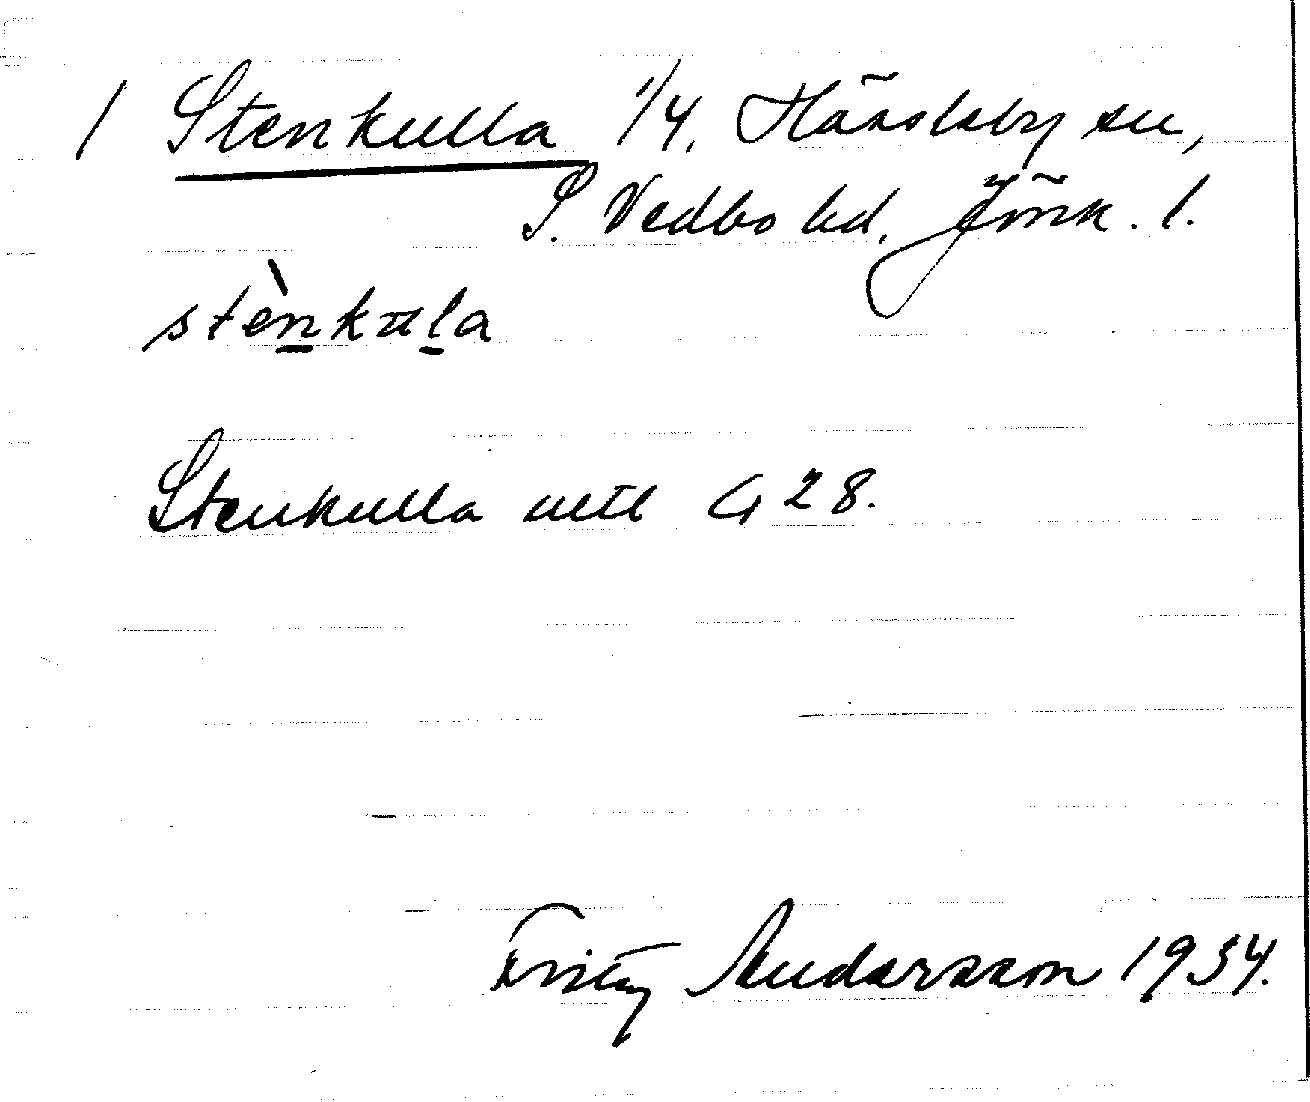 / Stenkulla 1/4. Hässleby sn,
S. Vedbo hd. Jönk. l.
stènkula
Stenkulla mtl G 28.
Fritz Andersson 1934.